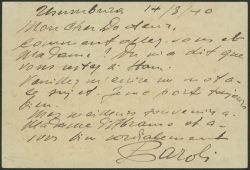 Usumbura 14/3/40
Mon cher Docteur,
Comment allez vous et
Madame? On m'a dit que
vous restez à
Veuillez m'écrire un mot à
ce sujet. Je me porte toujours
bien.
Mes meilleurs souvenirs à
Madame et à
vous bien cordialement